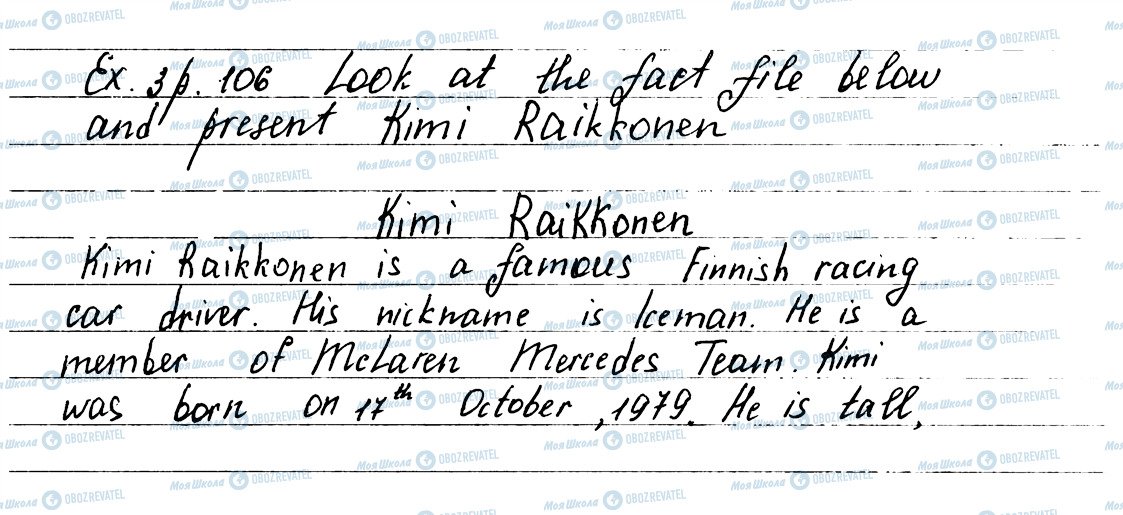 Ex. 3 p. 106 Look at the fact file below
and present Kimi Raikkonen
Kimi Raikkonen
Kimi Raikkonen is a famous Finnish racing
car driver. His nickname is Iceman. He is a
member of McLaren Mercedes Team. Kimi
was born on 17th October, 1979. He is tall,